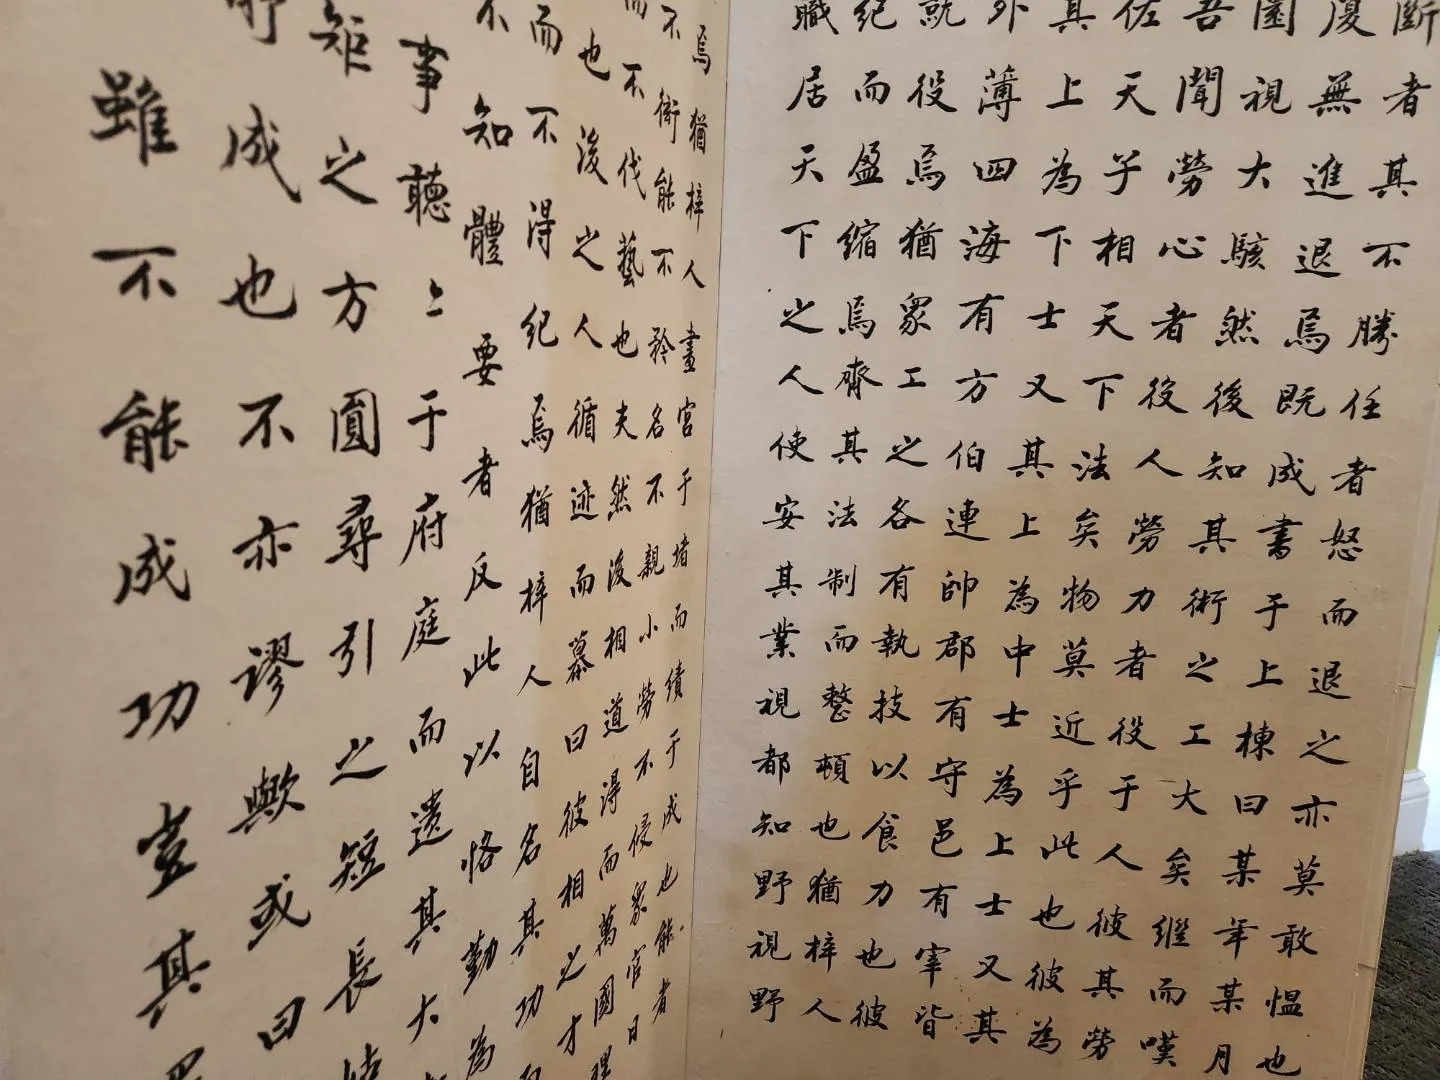 斷者其不勝任者怒而退之亦莫敢慍也
廈無進退焉既成書于上棟曰某年某月
圜視大駭然後知其術之工大矣繼而嘆
吾聞勞心者役人勞力者役于人彼其勞
佐天子相天下法矣物莫近乎此也彼為
其上為下士又其上為中士為上士又其
外薄四海有方伯連帥郡有守邑有宰皆
就役焉猶眾工之各有執技以食力也彼
紀而盈縮焉齊其法制而整頓也猶梓人
職居天下之人使安其業視都知野視野
焉猶梓人畫宮于堵而績于成也能者
不衒能不矜名不親小勞不侵眾官日
而不伐藝也夫然後相道得而萬國理
也後之人循迹而慕曰彼相之才
而不得紀焉猶梓人自名其功而
不知體要者反此以恪勤為
事聽〻于府庭而遺其大
矩之方圓尋引之短長
所成也不亦謬歟或曰
雖不能成功豈其